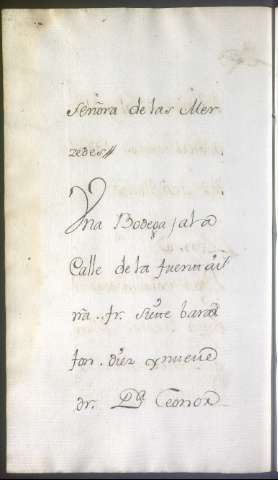 Señora de las Mer
zedes//
Vna Bodega j a la
Calle de la fuen
na. fr. Siete baras
fon. diez y nueue
dr. Dª Leonor